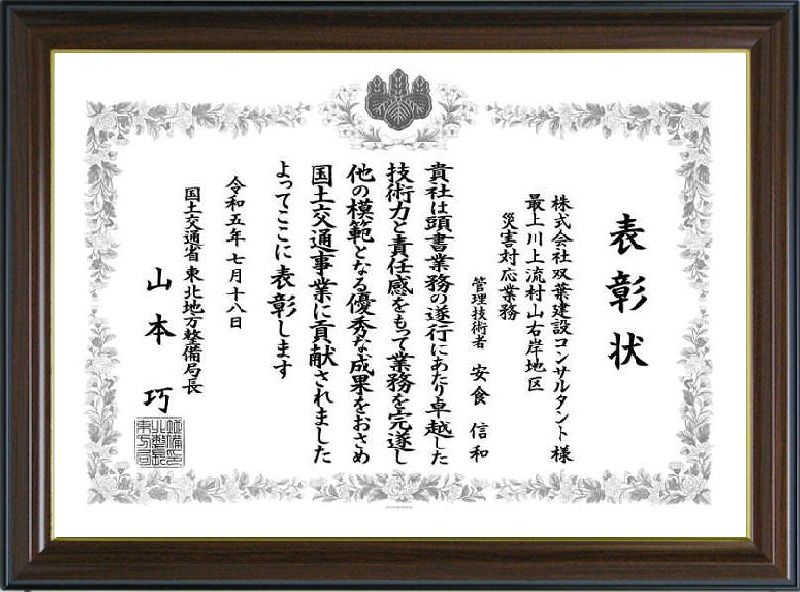 表彰状
株式会社双葉建設コンサルタント様
最上川上流村山右岸地区
災害対応業務
管理技術者 安食 信和
貴社は頭書業務の遂行にあたり卓越した
技術力と責任感をもって業務を完遂し
他の模範となる優秀な成果をおさめ
国土交通事業に貢献されました
よってここに表彰します
令和五年七月十八日
国土交通省東北地方整備局長
山本 巧